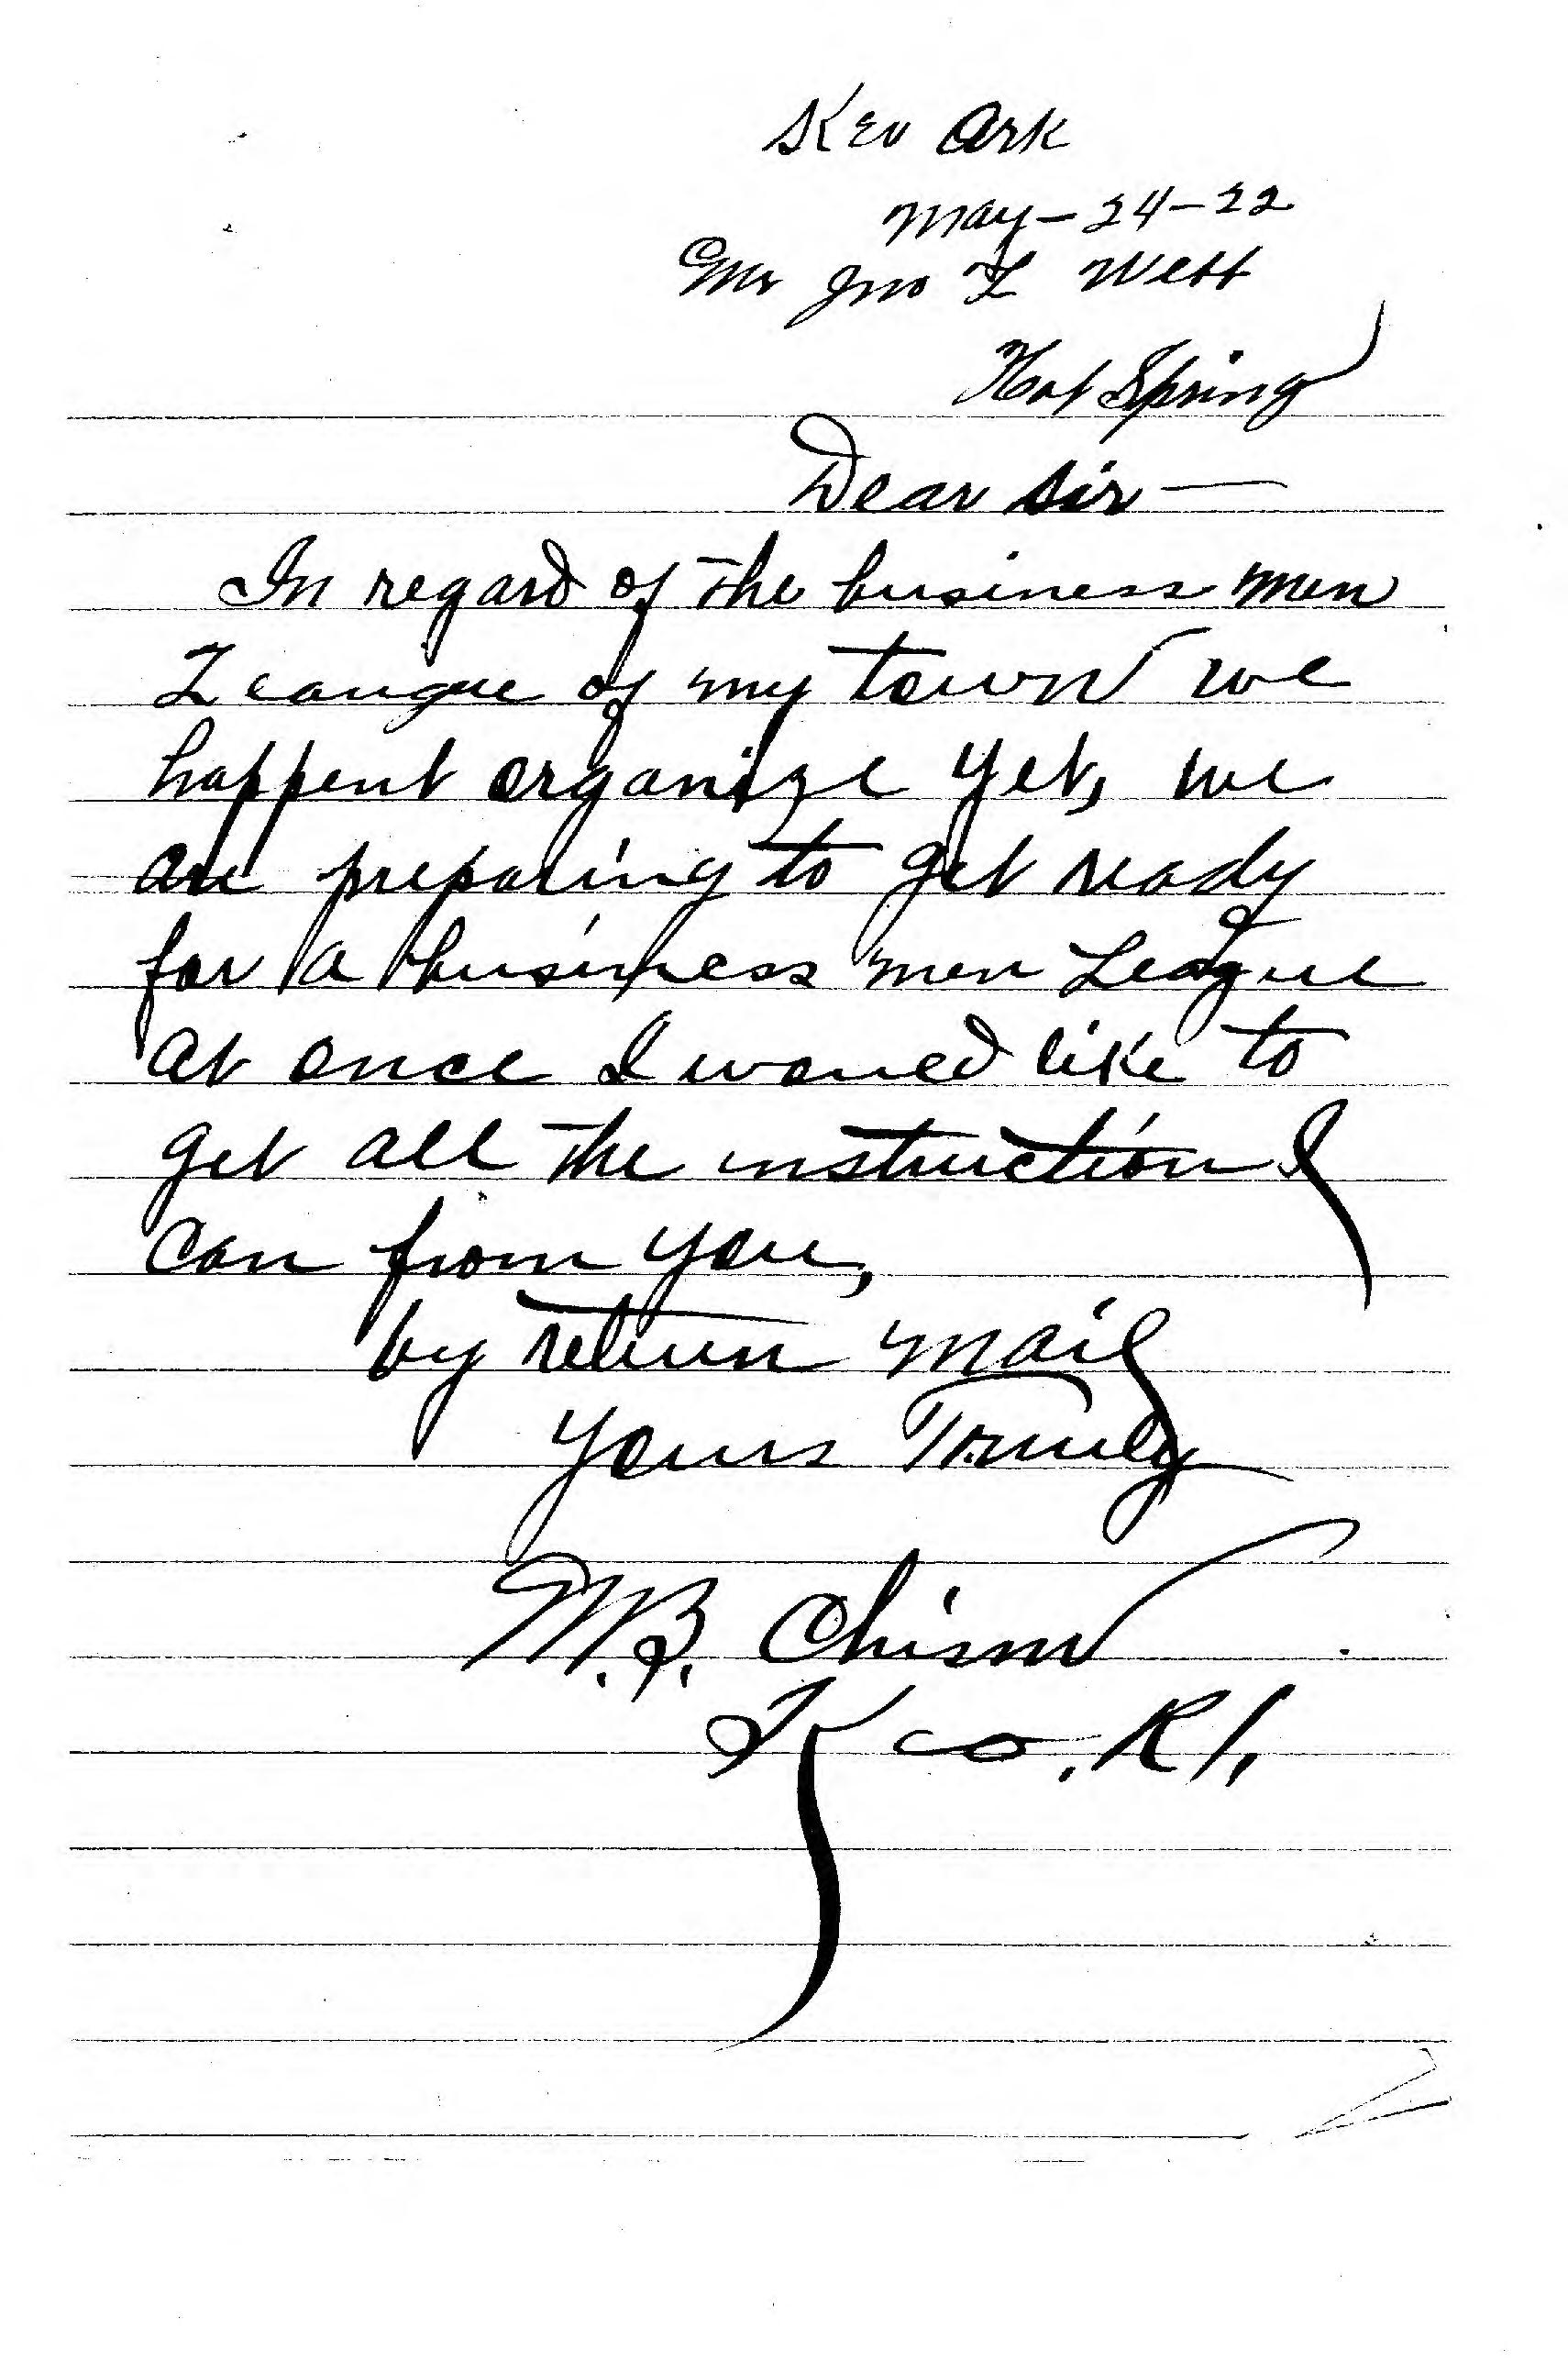 Keo Ark
May-24-22
Mr Jno L Webb
Hot Spring
Dear Sir —
In regard of the business men
League of my town we
happent organize yet, we
are preparing to get ready
for a business men League
at once I woued like to
get all the instruction I
can from you,
by return mail
yours Truely
M.B. Chism
Keo. R1.